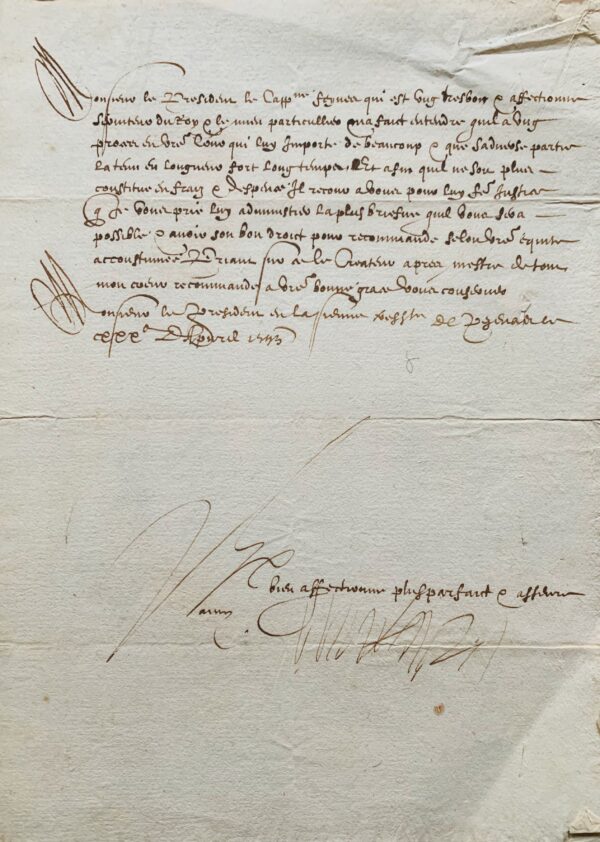 Monsieur le President le Capp.ne qui est ung tresbon & affectionne
serviteur du Roy & le mien particullier ma faict entendre quil a ung
proces en vre Court qui luy importe de beaucoup & que sadverse partie
la tenu en longueur fort long temps Et afin quil ne soit plus
constitue en fraiz & despence Il recourt a vous pour luy fe Justice
q Je vous prie luy administrer la plus briefve quil vous sera
possible & avoir son bon droict pour recommande selon vre equite
accoustumee Priant sur ce le Createur apres mestre de tout
mon coeur recommande a vre bonne grace vous conserver
Monsieur le President en la sienne De Pezenas le
xxx.e D'Apvril
Vre bien affectionne plus parfaict & asseure
amy